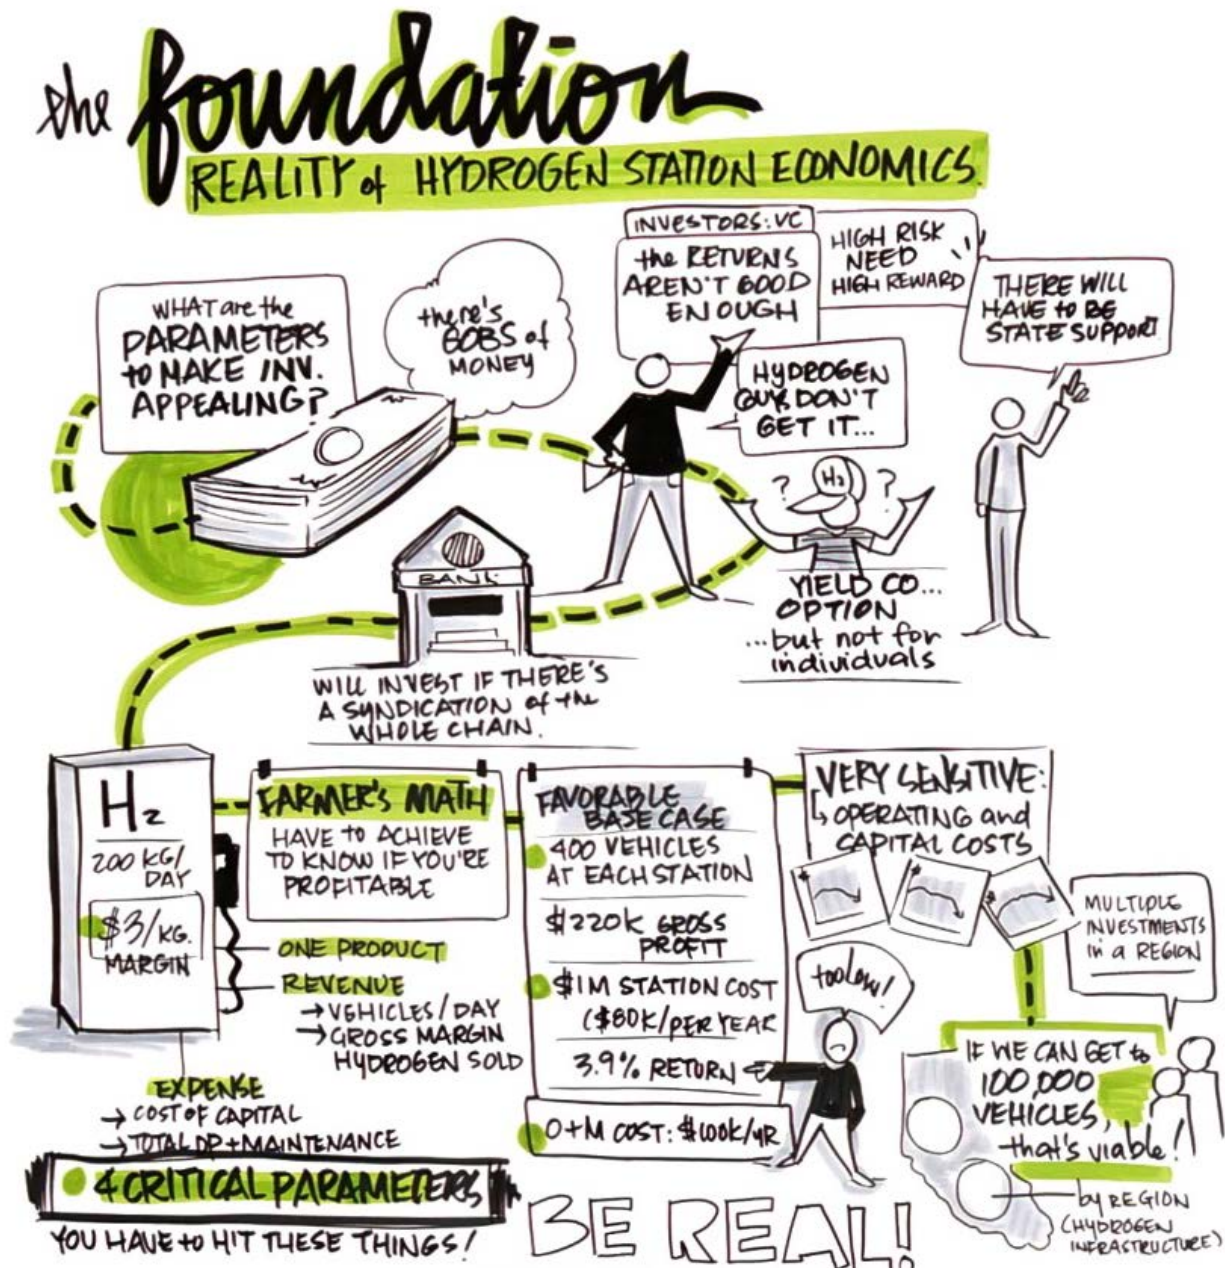 the foundation
REALITY of HYDROGEN STATION ECONOMICS.
WHAT are the
PARAMETERS
to MAKE INV.
APPEALING?
there's
GOBS of
MONEY
INVESTORS: VC
the RETURNS
AREN'T GOOD
ENOUGH
HIGH RISK
NEED
HIGH REWARD
THERE WILL
HAVE to BE
STATE SUPPORT
HYDROGEN
GUYS DON'T
GET IT...
? H2 ?
YIELD CO...
OPTION
...but not for
individuals
BANK
WILL INVEST IF THERE'S
A SYNDICATION of the
WHOLE CHAIN.
H2
200 KG/
DAY
$3/KG.
MARGIN
FARMER'S MATH
HAVE to ACHIEVE
TO KNOW IF YOU'RE
PROFITABLE
ONE PRODUCT
REVENUE
→ VEHICLES/DAY
→ GROSS MARGIN
HYDROGEN SOLD
EXPENSE
→ COST OF CAPITAL
→ TOTAL OP + MAINTENANCE
4 CRITICAL PARAMETERS
YOU HAVE to HIT THESE THINGS!
FAVORABLE
BASE CASE
400 VEHICLES
AT EACH STATION
$220K GROSS
PROFIT
$1M STATION COST
($80K/PER YEAR
3.9% RETURN
O+M COST: $100K/YR
too low!
BE REAL!
VERY SENSITIVE:
↳ OPERATING and
CAPITAL COSTS
$
$
$
MULTIPLE
INVESTMENTS
in a REGION
IF WE CAN GET to
100,000
VEHICLES,
that's viable!
by REGION
(HYDROGEN
INFRASTRUCTURE)